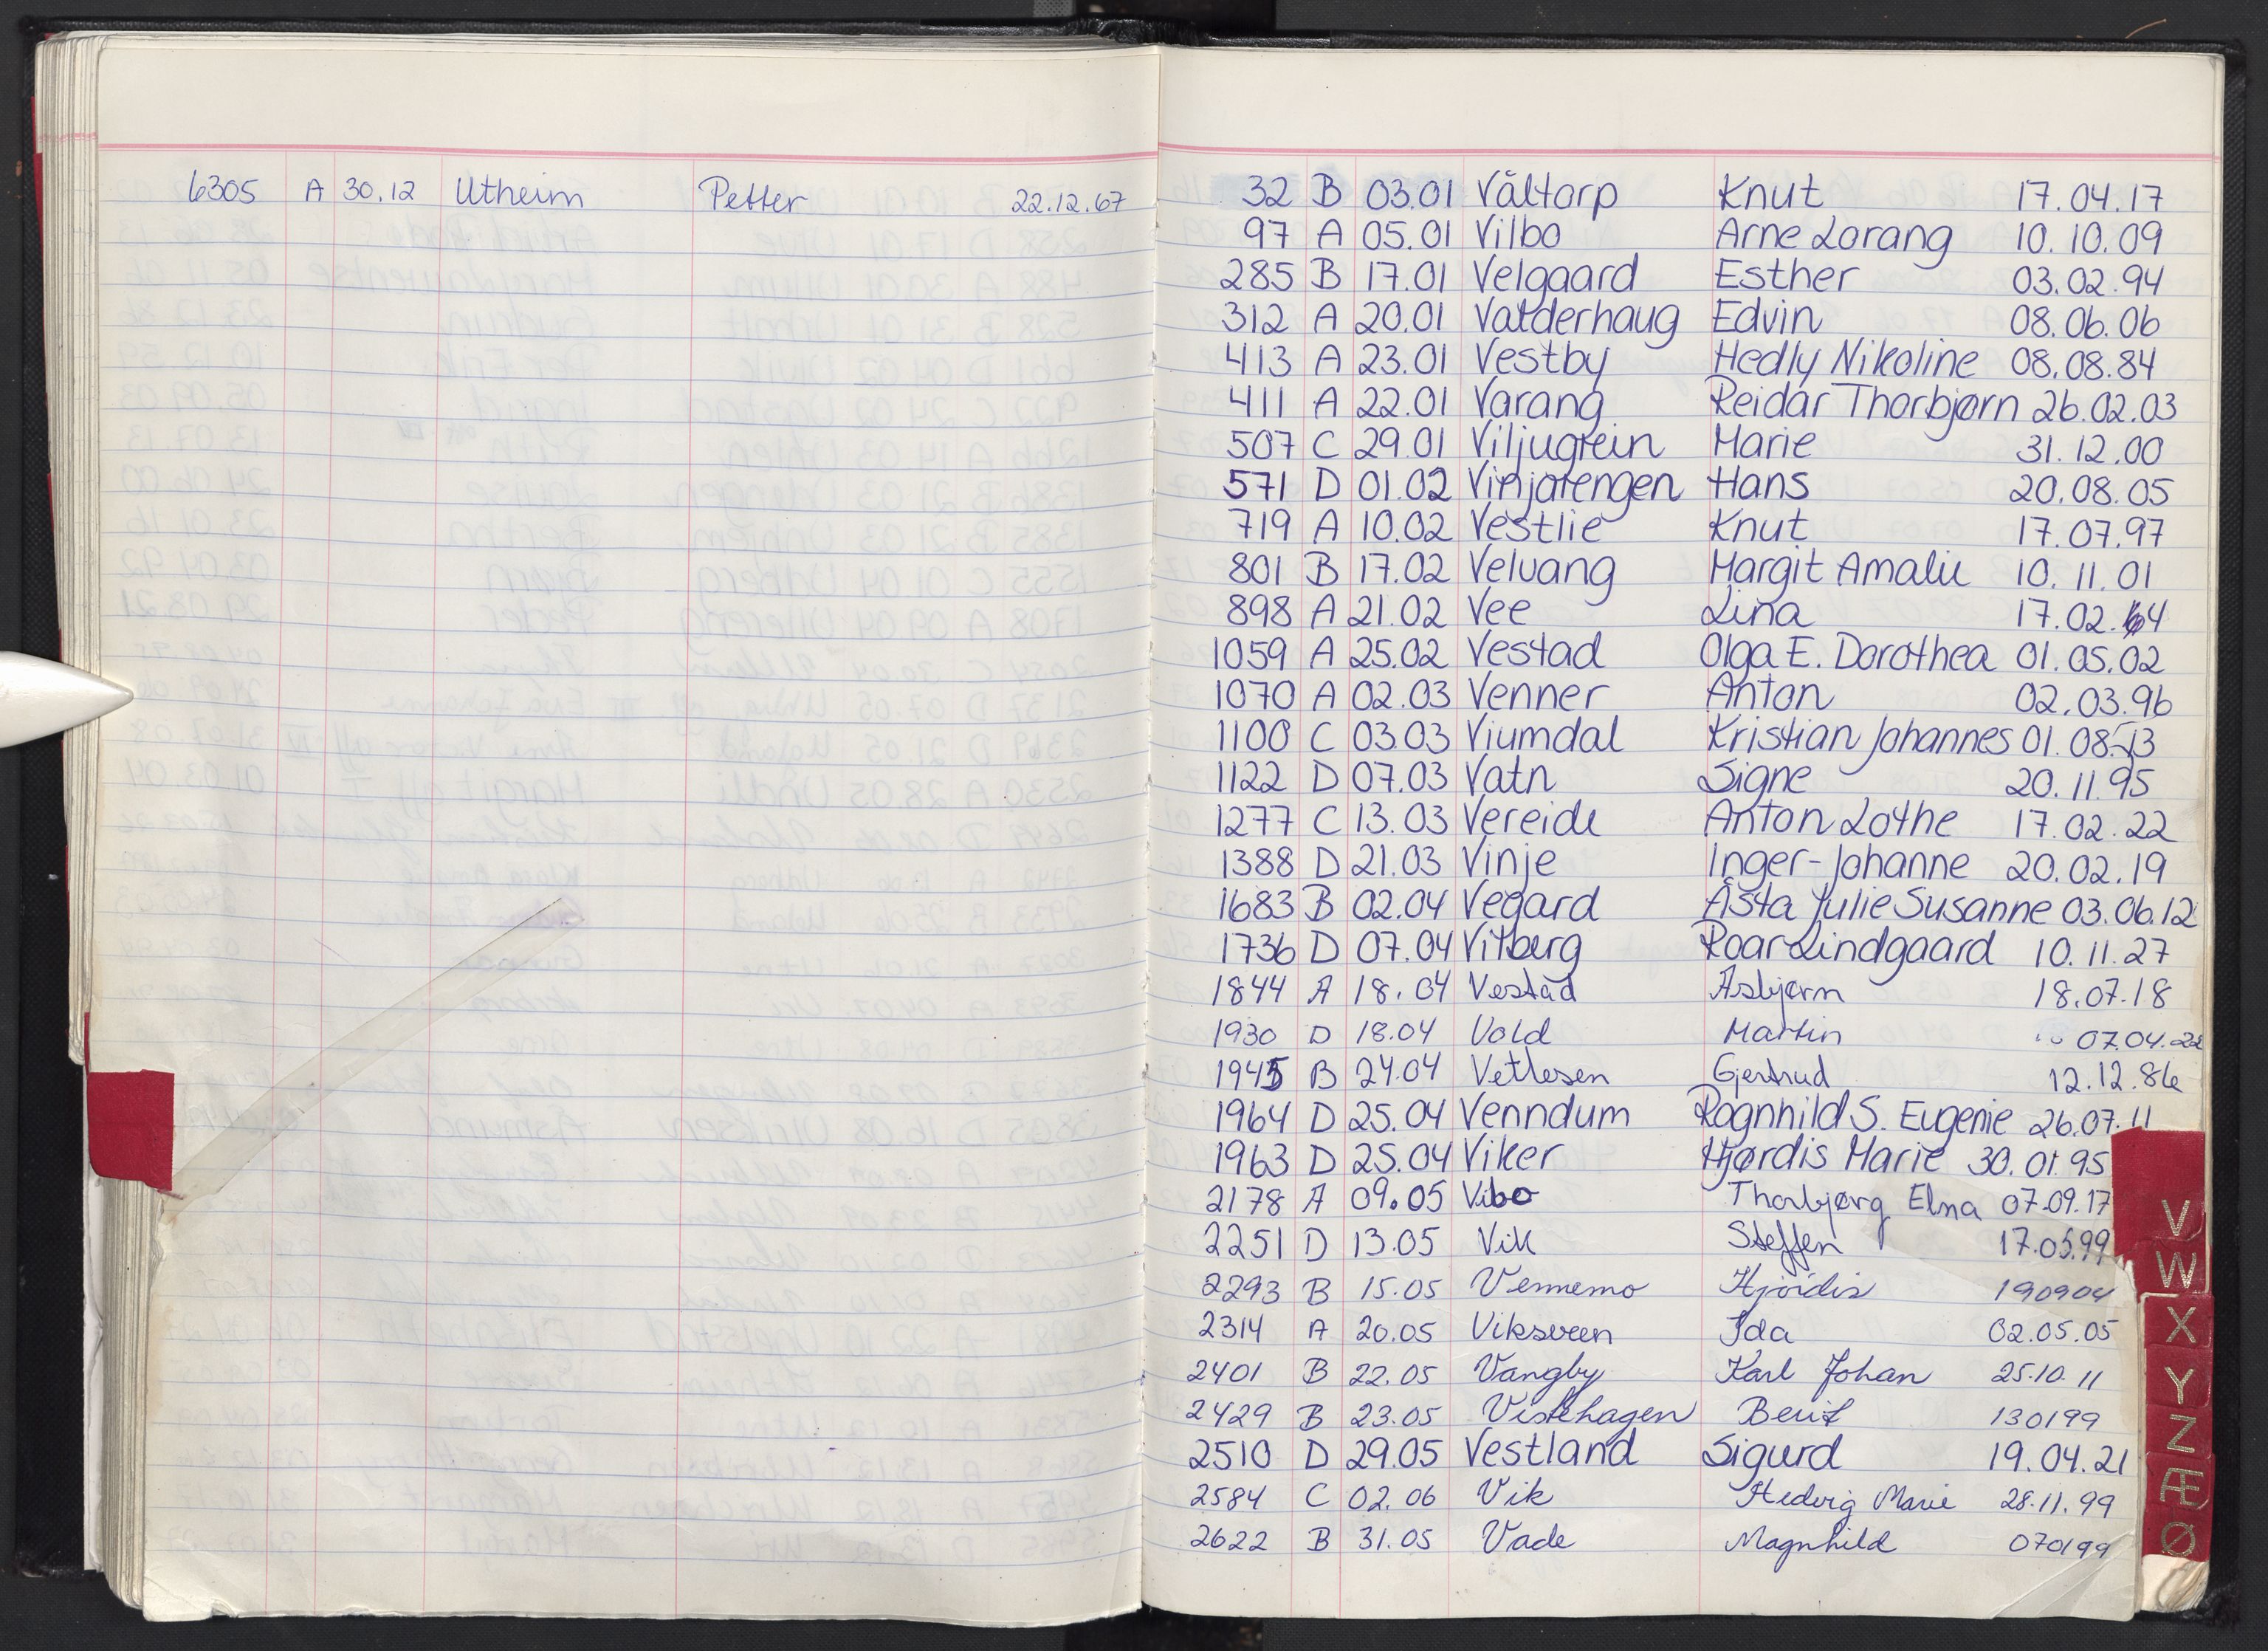 6305 A 30.12 Utheim Petter 22.12.67
32 B 03.01 Våltorp Knut 17.04.17
97 A 05.01 Vilbo Arne Lorang 10.10.09
285 B 17.01 Velgaard Esther 03.02.94
312 A 20.01 Valderhaug Edvin 08.06.06
413 A 23.01 Vestby Hedly Nikoline 08.08.84
411 A 22.01 Varang Reidar Thorbjørn 26.02.03
507 C 29.01 Viljugrein Marie 31.12.00
571 D 01.02 Vinjarengen Hans 20.08.05
719 A 10.02 Vestlie Knut 17.07.97
801 B 17.02 Velvang Margit Amalie 10.11.01
898 A 21.02 Vee Lina 17.02.64
1059 A 25.02 Vestad Olga E. Dorothea 01.05.02
1070 A 02.03 Venner Anton 02.03.96
1100 C 03.03 Viumdal Kristian Johannes 01.08.13
1122 D 07.03 Vatn Signe 20.11.95
1277 C 13.03 Vereide Anton Lothe 17.02.22
1388 D 21.03 Vinje Inger-Johanne 20.02.19
1683 B 02.04 Vegard Åsta Julie Susanne 03.06.12
1736 D 07.04 Vitberg Roar Lindgaard 10.11.27
1844 A 18.04 Vestad Asbjørn 18.07.18
1930 D 18.04 Vold Martin 07.04.22
1945 B 24.04 Vetlesen Gjertrud 12.12.86
1964 D 25.04 Venndum Ragnhild S. Eugenie 26.07.11
1963 D 25.04 Viker Hjørdis Marie 30.01.95
2178 A 09.05 Vibo Thorbjørg Elna 07.09.17
2251 D 13.05 Vik Steffen 17.05.99
2293 B 15.05 Vennemo Hjördis 190904
2314 A 20.05 Viksveen Ida 02.05.05
2401 B 22.05 Vangby Karl Johan 25.10.11
2429 B 23.05 Vistehagen Berit 130199
2510 D 29.05 Vestland Sigurd 19.04.21
2584 C 02.06 Vik Hedvig Marie 28.11.99
2622 B 31.05 Vade Magnhild 070199
V
W
X
Y
Z
Æ
Ø